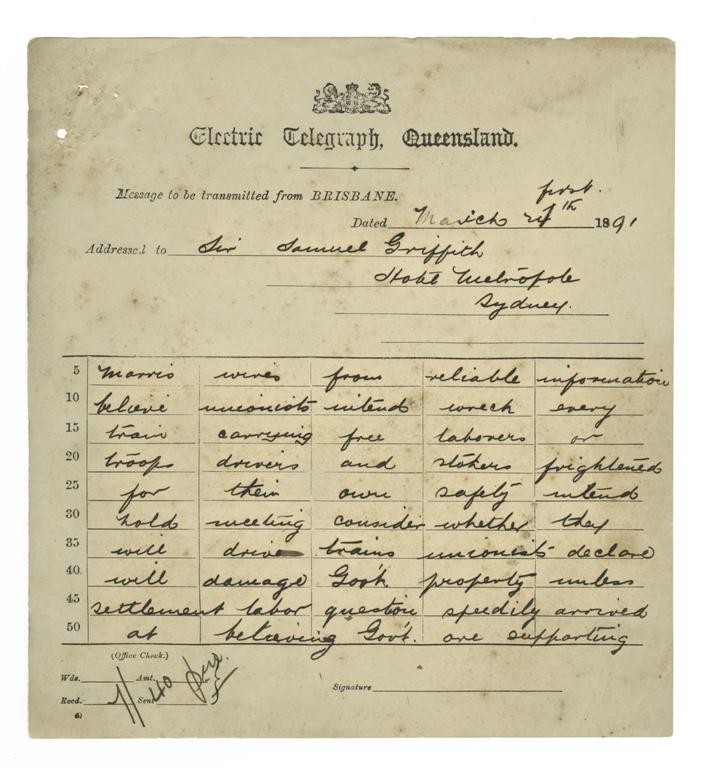 Electric Telegraph, Queensland.
Message to be transmitted from BRISBANE.
Dated March 1891
Addressed to Sir Samuel Griffith
Hotel Metropole
Sydney.
5 Morris wires from reliable information
10 believe unionists intends wreck every
15 train carrying free laborers or
20 troops drivers and stokers frightened
25 for their own safety intend
30 hold meeting consider whether they
35 will drive trains unionists declare
40 will damage Gov't. property unless
45 settlement labor question speedily arrived
50 at believing Gov't. are supporting
(Office Check.)
Wds. Amt.
Recd. Sent 40
Signature